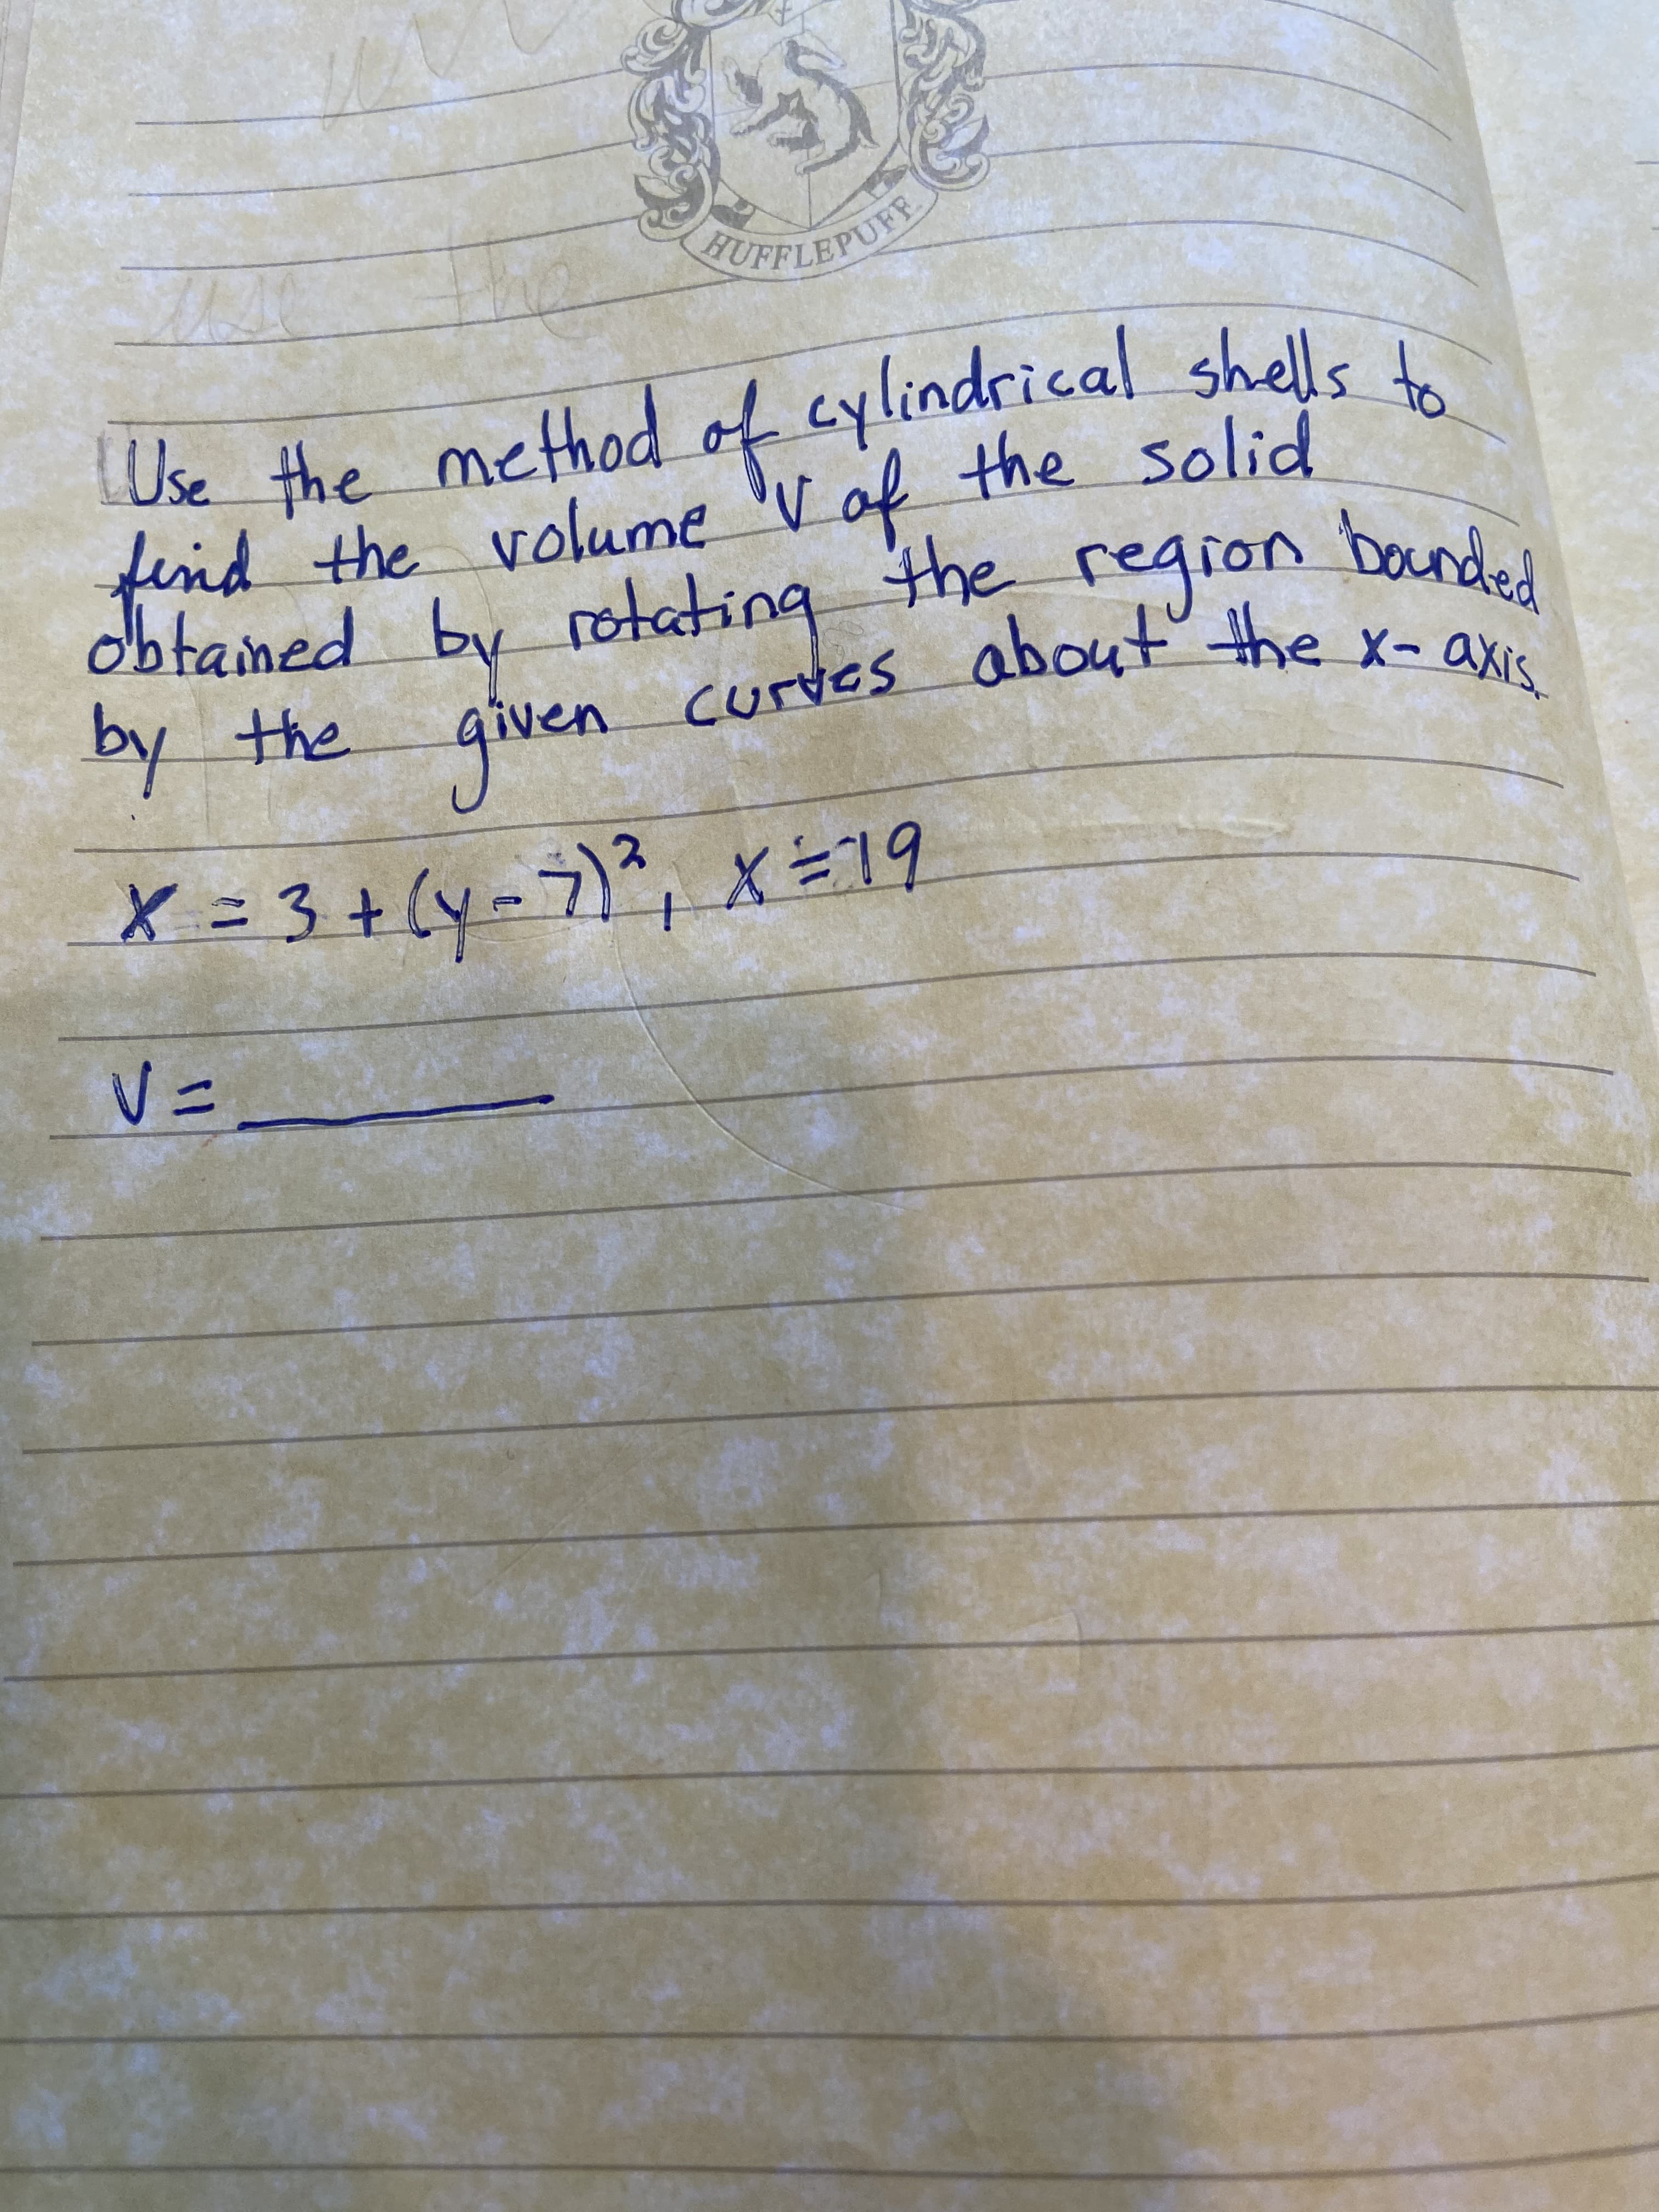 HUFFLEPUFF
use the
Use the method of cylindrical shells to
find the volume V of the solid
obtained by rotating the region bounded
by the given curves about the x-axis.
x = 3 + (y - 7)², x = 19
V = ________